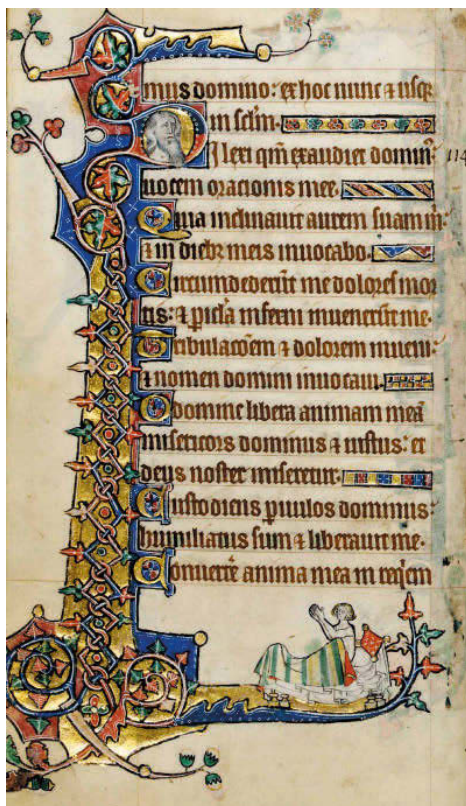 mus domino: ex hoc nunc ⁊ usqꝫ
in sclm.
Dilexi qm̄ exaudiet domin᷒ 114
uocem oracionis mee.
Quia inclinauit aurem suam m̄:
⁊ in dieb᷒ meis inuocabo.
Circumdederūt me dolores mor
tis: ⁊ picła inferni inuenerūt me.
Tribulacōem ⁊ dolorem inueni:
⁊ nomen domini inuocaui.
O domine libera animam meā
misericors dominus ⁊ iustus: et
deus noster miseretur.
Custodiens puulos dominus:
humiliatus sum ⁊ liberauit me.
Conuerte anima mea in reqēm